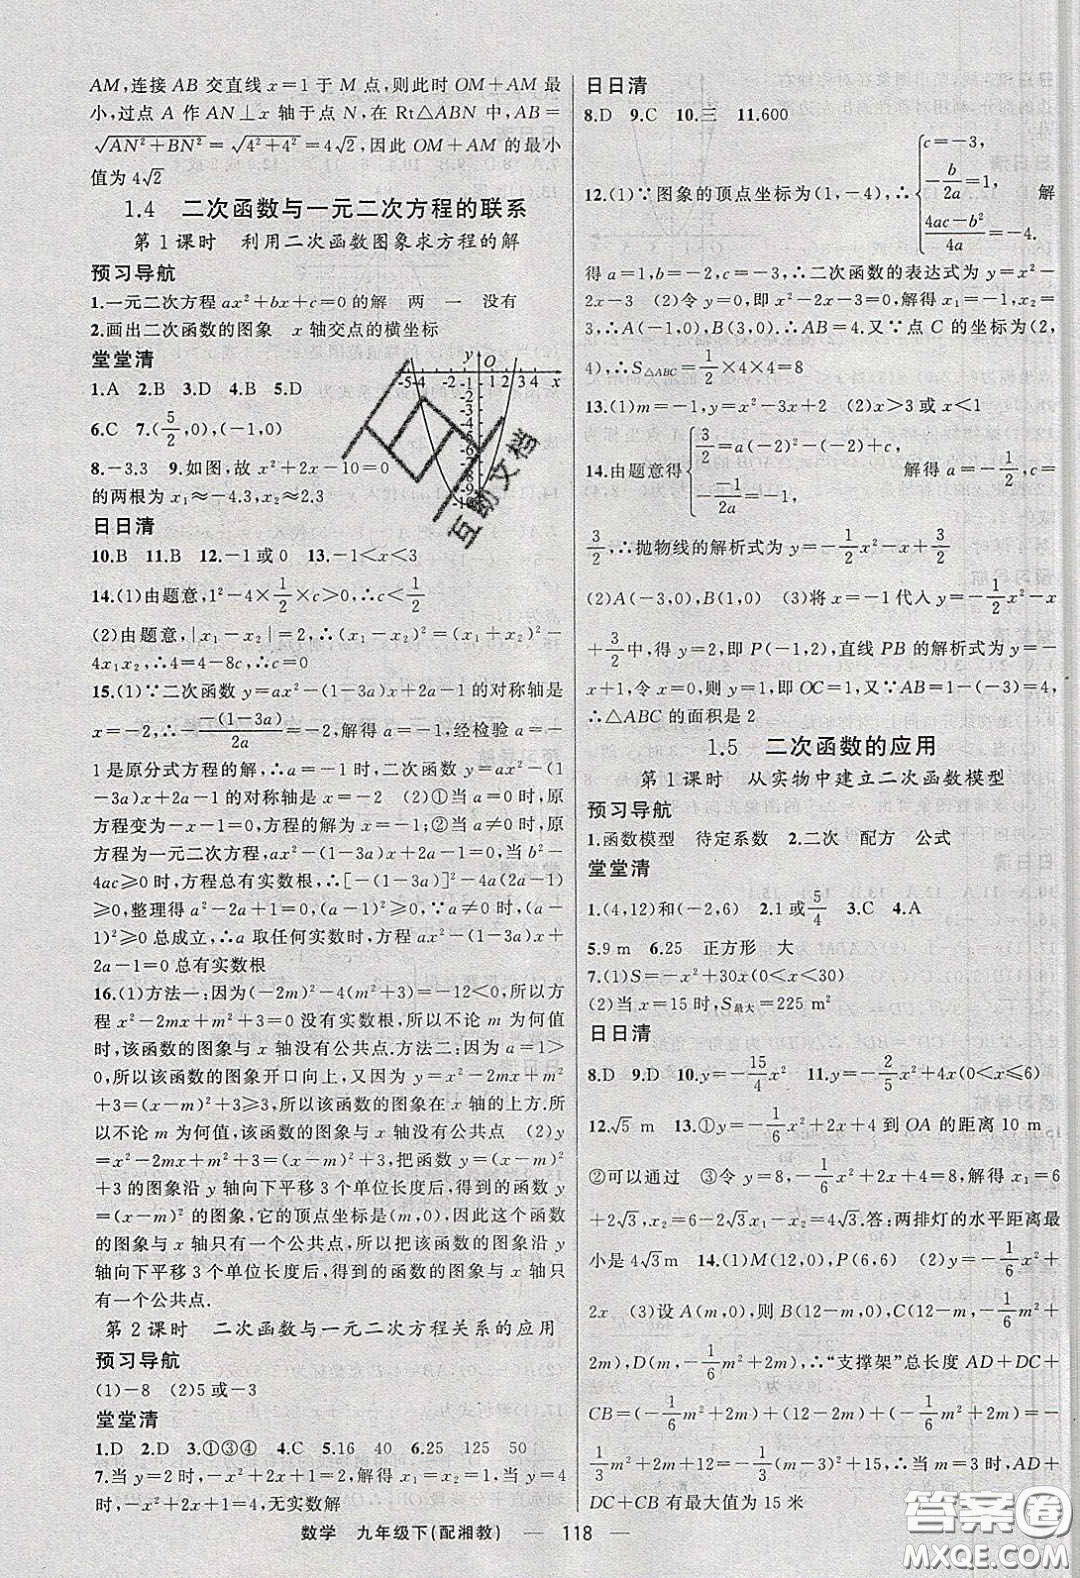 AM,连接 AB 交直线 x=1 于 M 点,则此时 OM+AM 最
小,过点 A 作 AN⊥x 轴于点 N,在 Rt△ABN 中,AB=
√(AN²+BN²)=√(4²+4²)=4√2,因此 OM+AM 的最小
值为 4√2
1.4 二次函数与一元二次方程的联系
第 1 课时 利用二次函数图象求方程的解
预习导航
1.一元二次方程 ax²+bx+c=0 的解 两 一 没有
2.画出二次函数的图象 x 轴交点的横坐标
堂堂清
1.A 2.B 3.D 4.B 5.D
6.C 7.(5/2,0),(-1,0)
8.-3.3 9.如图,故 x²+2x-10=0
的两根为 x₁≈-4.3,x₂≈2.3
日日清
10.B 11.B 12.-1 或 0 13.-1<x<3
14.(1)由题意,1²-4×1/2×c>0,∴c<1/2
(2)由题意,|x₁-x₂|=2,∴(x₁-x₂)²=(x₁+x₂)²-
4x₁x₂,∴4=4-8c,∴c=0
15.(1)∵二次函数 y=ax²-(1-3a)x+2a-1 的对称轴是
x=-2,∴-(-(1-3a))/(2a)=-2,解得 a=-1,经检验 a=-
1 是原分式方程的解,∴a=-1 时,二次函数 y=ax²-(1
-3a)x+2a-1 的对称轴是 x=-2 (2)①当 a=0 时,原
方程变为-x-1=0,方程的解为 x=-1;②当 a≠0 时,原
方程为一元二次方程,ax²-(1-3a)x+2a-1=0,当 b²-
4ac≥0 时,方程总有实数根,∴[-(1-3a)]²-4a(2a-1)
≥0,整理得 a²-2a+1≥0,(a-1)²≥0,∵a≠0 时,(a-
1)²≥0 总成立,∴a 取任何实数时,方程 ax²-(1-3a)x+
2a-1=0 总有实数根
16.(1)方法一:因为(-2m)²-4(m²+3)=-12<0,所以方
程 x²-2mx+m²+3=0 没有实数根,所以不论 m 为何值
时,该函数的图象与 x 轴没有公共点.方法二:因为 a=1>
0,所以该函数的图象开口向上,又因为 y=x²-2mx+m²
+3=(x-m)²+3≥3,所以该函数的图象在 x 轴的上方.所
以不论 m 为何值,该函数的图象与 x 轴没有公共点 (2)y
=x²-2mx+m²+3=(x-m)²+3,把函数 y=(x-m)²
+3 的图象沿 y 轴向下平移 3 个单位长度后,得到的函数 y
=(x-m)² 的图象,它的顶点坐标是(m,0),因此这个函数
的图象与 x 轴只有一个公共点,所以把该函数的图象沿 y
轴向下平移 3 个单位长度后,得到的函数的图象与 x 轴只
有一个公共点.
第 2 课时 二次函数与一元二次方程关系的应用
预习导航
(1)-8 (2)5 或-3
堂堂清
1.D 2.D 3.①③④ 4.C 5.16 40 6.25 125 50
7.当 y=2 时,-x²+2x+1=2,解得 x₁=x₂=1,当 y=4
时,-x²+2x+1=4,无实数解
日日清
8.D 9.C 10.三 11.600
12.(1)∵图象的顶点坐标为(1,-4),∴{c=-3, -b/(2a)=1, (4ac-b²)/(4a)=-4. 解
得 a=1,b=-2,c=-3,∴二次函数的表达式为 y=x²-
2x-3 (2)令 y=0,即 x²-2x-3=0,解得 x₁=-1,x₂=
3,∴A(-1,0),B(3,0).∴AB=4.又∵点 C 的坐标为(2,
4),∴S△ABC=1/2×4×4=8
13.(1)m=-1,y=x²-3x+2 (2)x>3 或 x<1
14.由题意得{3/2=a(-2)²-(-2)+c, -(-1)/(2a)=-1, 解得 a=-1/2,c=
3/2,∴抛物线的解析式为 y=-1/2x²-x+3/2
(2)A(-3,0),B(1,0) (3)将 x=-1 代入 y=-1/2x²-x
+3/2中,得 y=2,即 P(-1,2),直线 PB 的解析式为 y=-
x+1,令 x=0,则 y=1,即 OC=1,又∵AB=1-(-3)=4,
∴△ABC 的面积是 2
1.5 二次函数的应用
第 1 课时 从实物中建立二次函数模型
预习导航
1.函数模型 待定系数 2.二次 配方 公式
堂堂清
1.(4,12)和(-2,6) 2.1 或5/4 3.C 4.A
5.9 m 6.25 正方形 大
7.(1)S=-x²+30x(0<x<30)
(2)当 x=15 时,S最大=225 m²
日日清
8.D 9.D 10.y=-15/4x² 11.y=-2/5x²+4x(0≤x≤6)
12.√5 m 13.①y=-1/6x²+2x+4 到 OA 的距离 10 m
②可以通过 ③令 y=8,即-1/6x²+2x+4=8,解得 x₁=6
+2√3,x₂=6-2√3 x₁-x₂=4√3.答:两排灯的水平距离最
小是 4√3 m 14.(1)M(12,0),P(6,6) (2)y=-1/6x²+
2x (3)设 A(m,0),则 B(12-m,0),C(12-m,-1/6m²+
2m),D(m,-1/6m²+2m),∴“支撑架”总长度 AD+DC+
CB=(-1/6m²+2m)+(12-2m)+(-1/6m²+2m)=-
1/3m²+2m+12=-1/3(m-3)²+15.∴当 m=3 时,AD+
DC+CB 有最大值为 15 米
数学 九年级下(配湘教) — 118 —
日日互助文档
答案圈
MXQE.COM